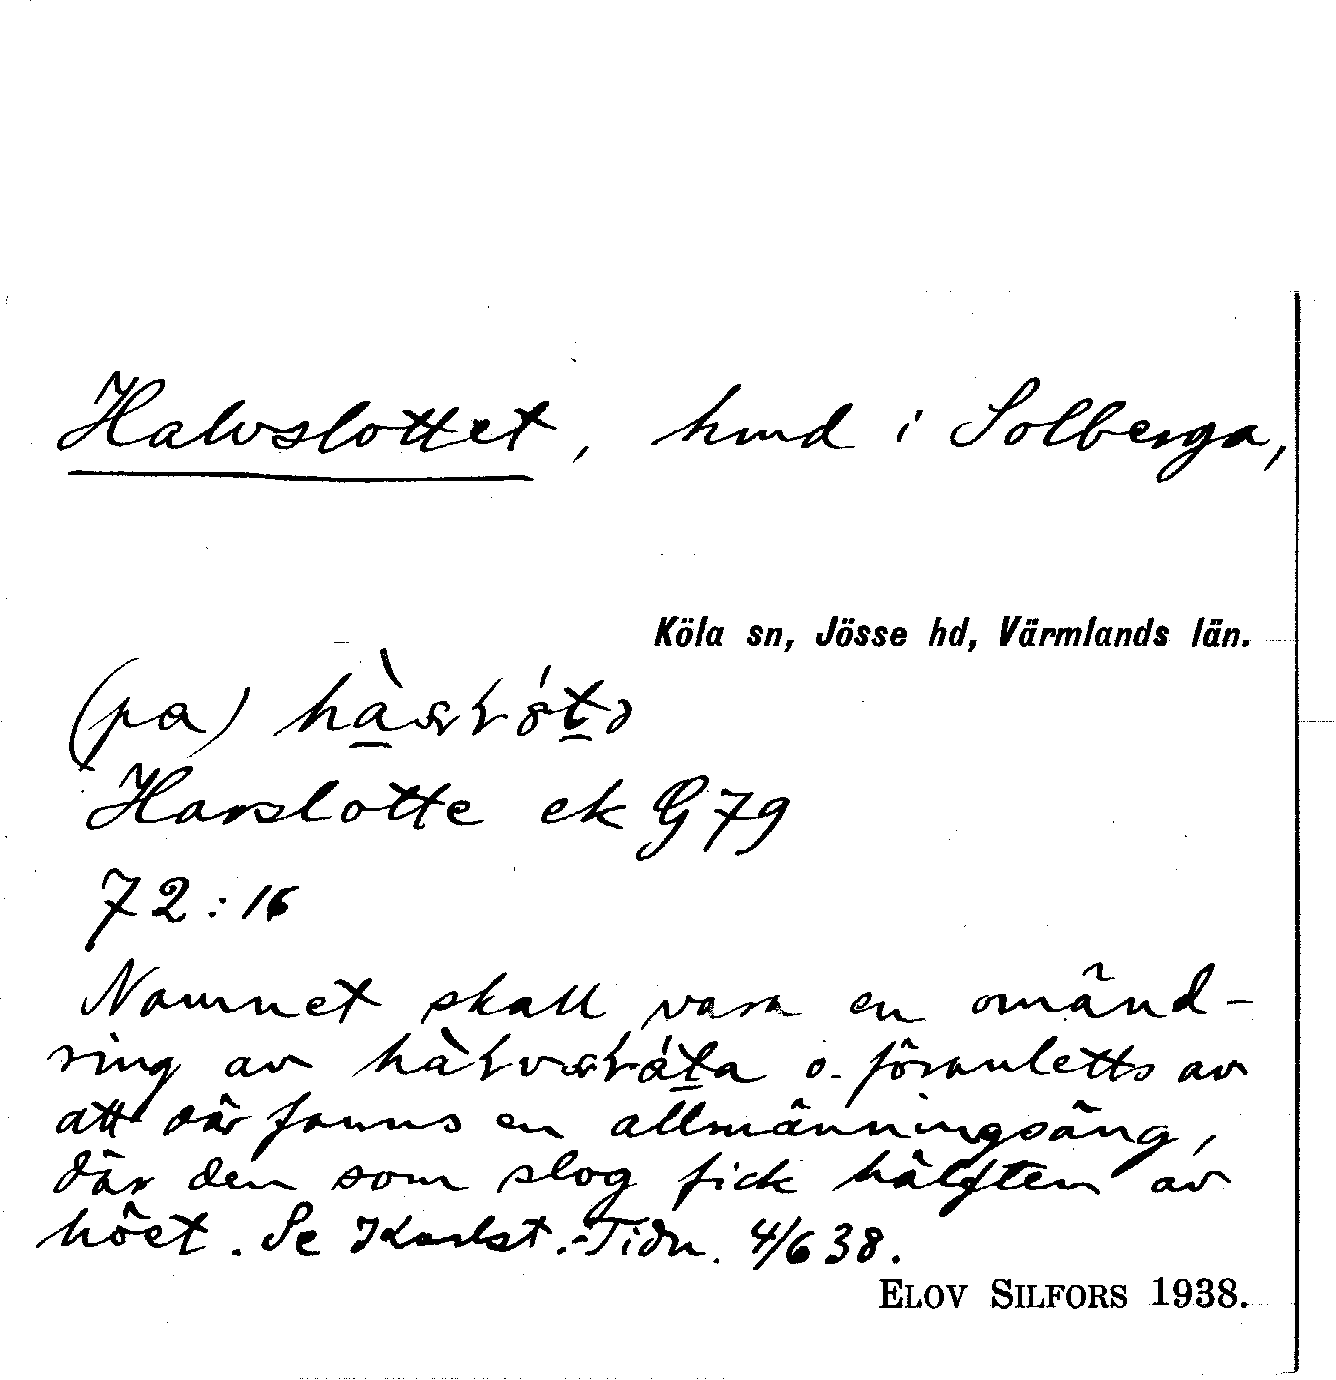 Halvslottet, hmd i Solberga,
Köla sn, Jösse hd, Värmlands län.
(pa)
Harslotte ek G 79
72:16
Namnet skall vara en omänd-
ring av o. föranletts av
att där fanns en allmänningsäng,
där den som slog fick hälften av
höet. Se Karlst.-Tidn. 4/6 38.
ELOV SILFORS 1938.